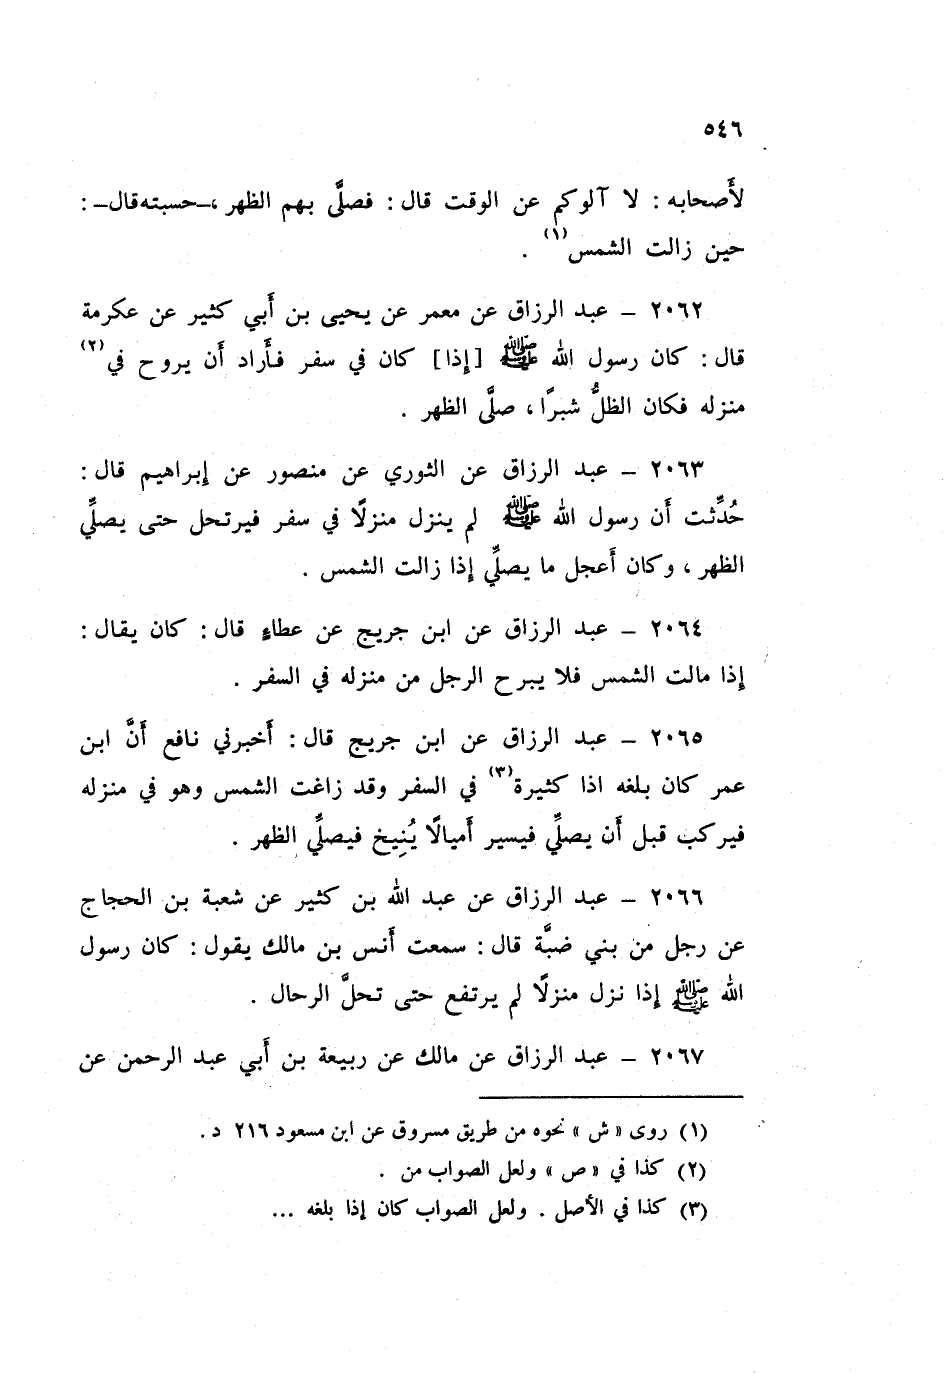 ٥٤٦
لأَصحابه : لا آلوكم عن الوقت قال : فصلَّى بهم الظهر ،ــحسبته قالــ :
حين زالت الشمس(١) .
٢٠٦٢ ــ عبد الرزاق عن معمر عن يحيى بن أَبي كثير عن عكرمة
قال : كان رسول الله ﷺ [إذا] كان في سفر فأَراد أَن يروح في(٢)
منزله فكان الظلُّ شبرًا ، صلَّى الظهر .
٢٠٦٣ ــ عبد الرزاق عن الثوري عن منصور عن إبراهيم قال :
حُدِّثت أَن رسول الله ﷺ لم ينزل منزلًا في سفر فيرتحل حتى يصلِّي
الظهر ، وكان أَعجل ما يصلِّي إذا زالت الشمس .
٢٠٦٤ ــ عبد الرزاق عن ابن جريج عن عطاءٍ قال : كان يقال :
إذا مالت الشمس فلا يبرح الرجل من منزله في السفر .
٢٠٦٥ ــ عبد الرزاق عن ابن جريج قال : أَخبرني نافع أَنَّ ابن
عمر كان بلغه اذا كثيرة(٣) في السفر وقد زاغت الشمس وهو في منزله
فيركب قبل أَن يصلِّي فيسير أَميالًا يُنِيخ فيصلِّي الظهر .
٢٠٦٦ ــ عبد الرزاق عن عبد الله بن كثير عن شعبة بن الحجاج
عن رجل من بني ضبَّة قال : سمعت أَنس بن مالك يقول : كان رسول
الله ﷺ إذا نزل منزلًا لم يرتفع حتى تحلَّ الرحال .
٢٠٦٧ ــ عبد الرزاق عن مالك عن ربيعة بن أَبي عبد الرحمن عن
(١) روى « ش » نحوه من طريق مسروق عن ابن مسعود ٢١٦ د .
(٢) كذا في « ص » ولعل الصواب من .
(٣) كذا في الأصل . ولعل الصواب كان إذا بلغه ...